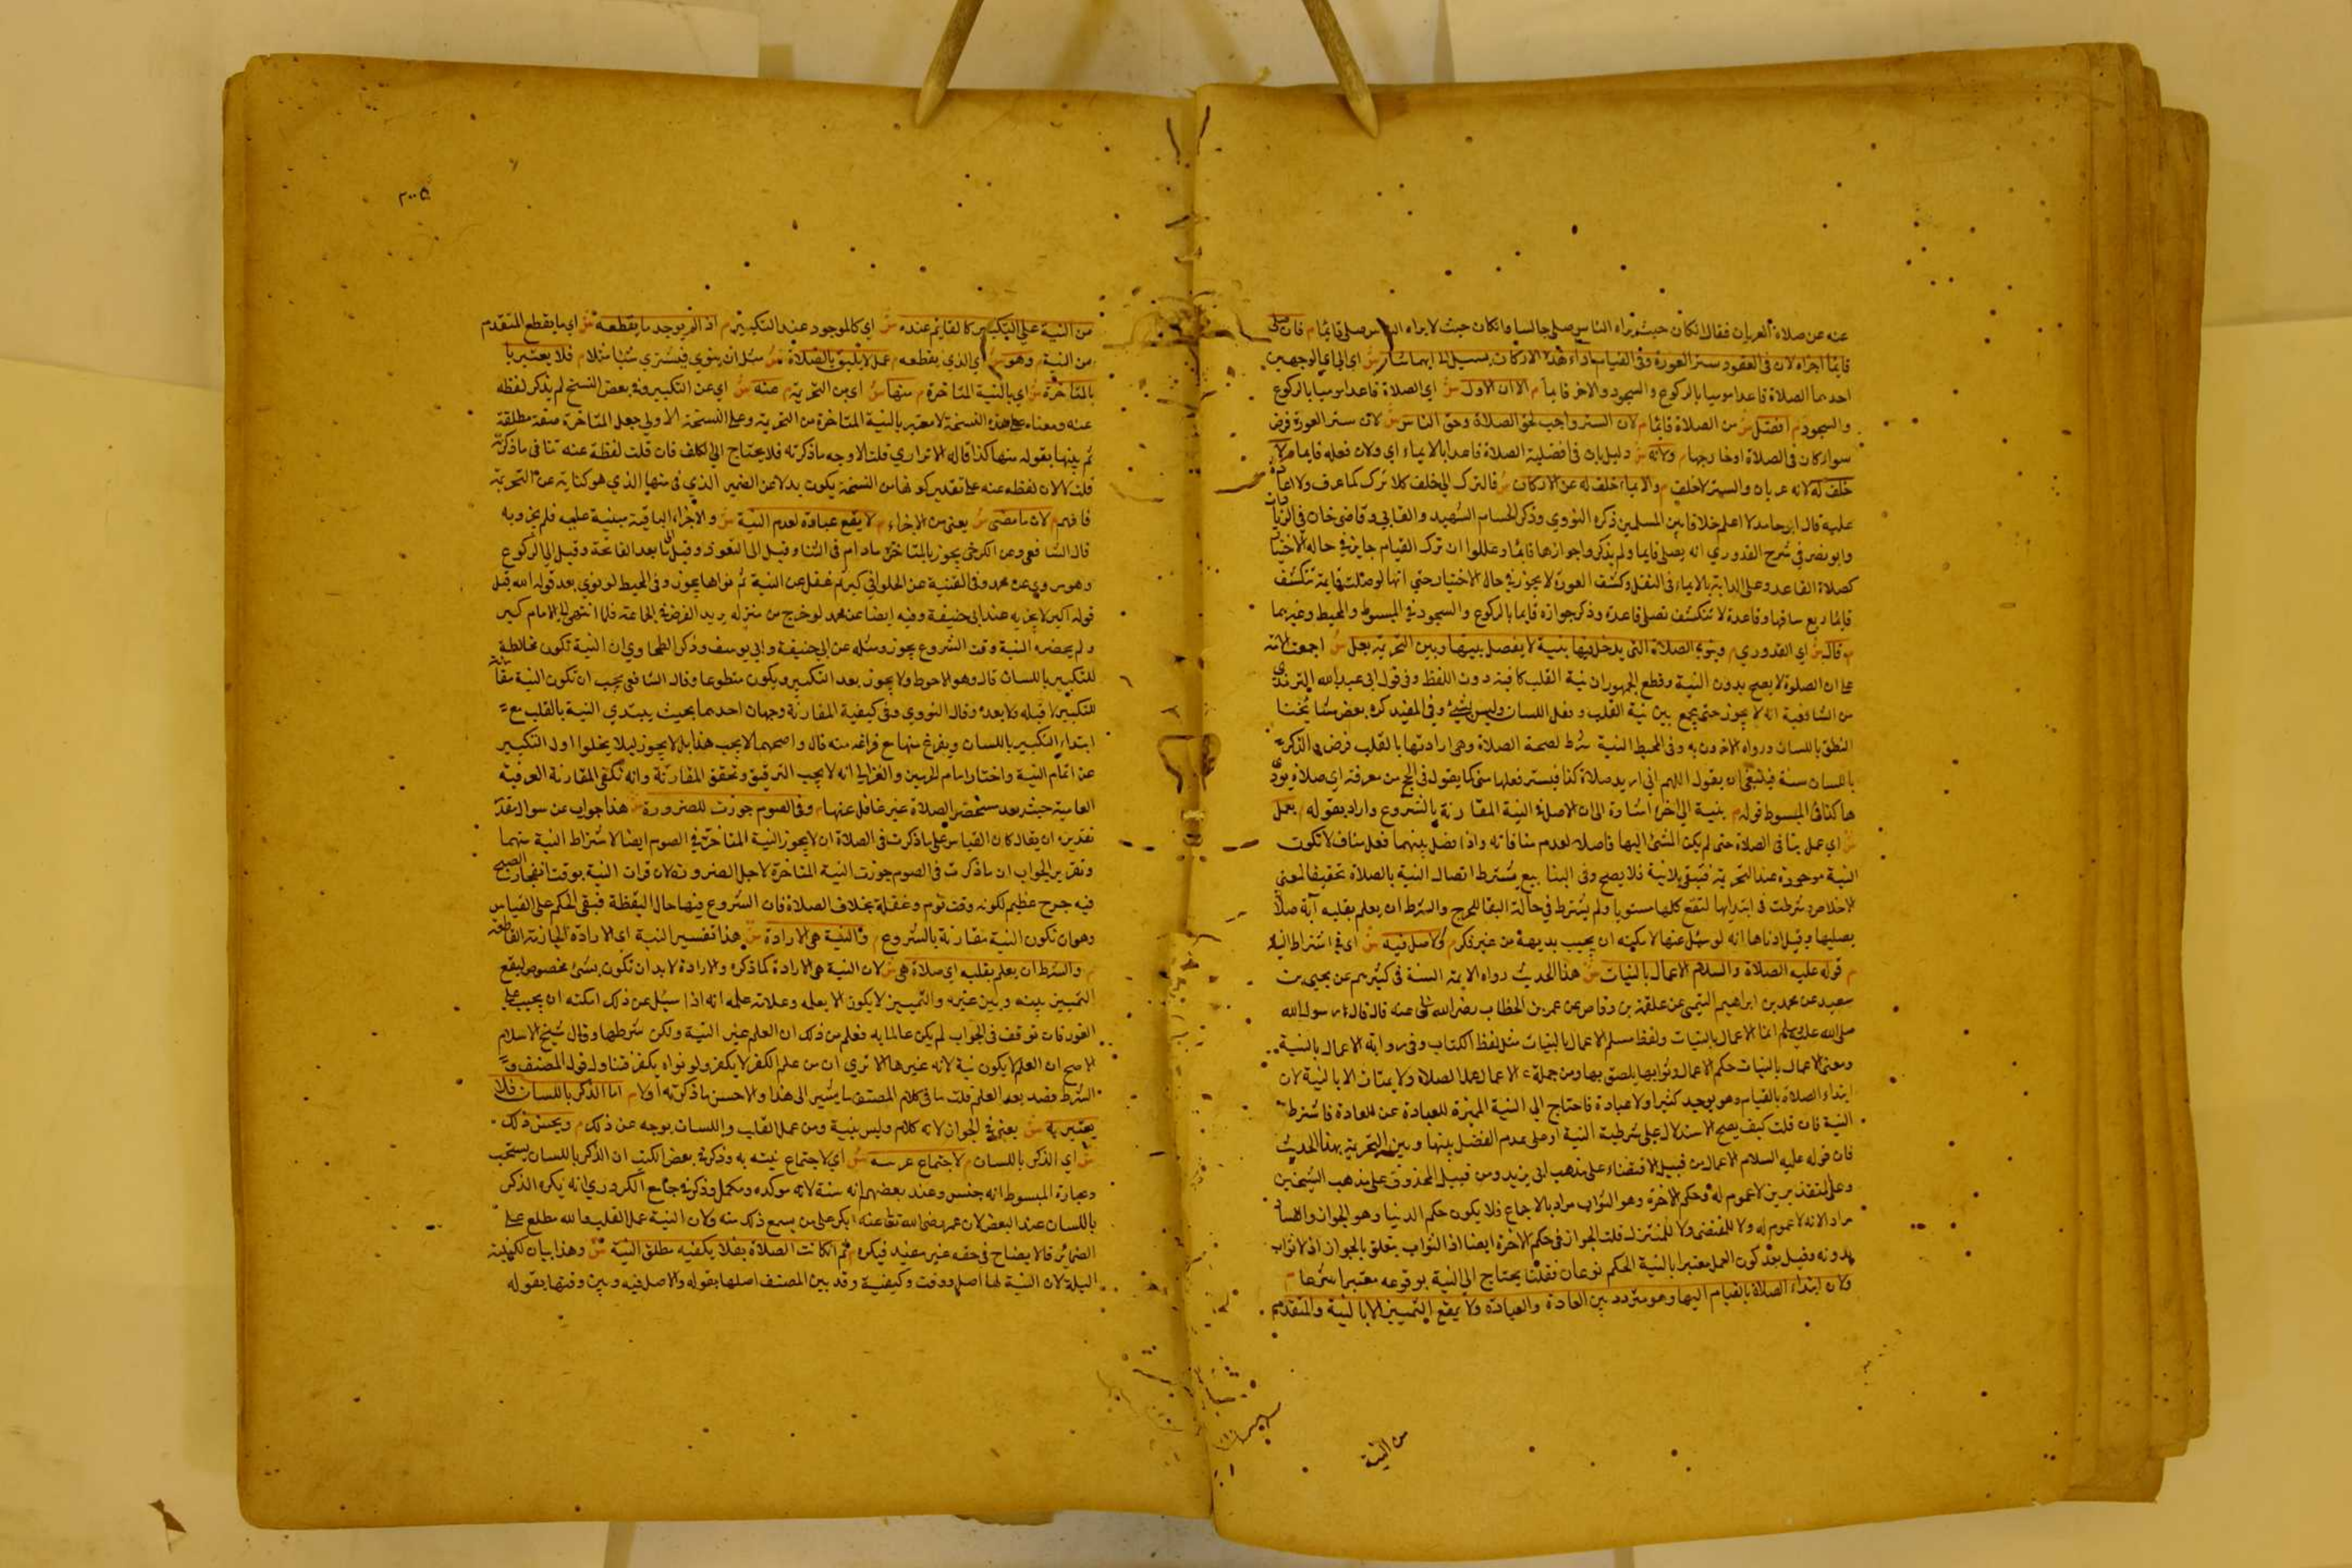 عنه عن صلاة العريان فقال ان كان حيث يراه الناس صلى جالسا وان كان حيث لا يراه الناس صلى قائما م فان صلى
قائما اجزاه لان فى القعود ستر العورة وفى القيام اداء هذه الاركان يميل الى ايهما شاء ش اى الى اى الوجهين
احدهما الصلاة قاعدا موميا بالركوع والسجود والاخر قائما م الا ان الاول ش اي الصلاة قاعدا موميا بالركوع
والسجود م افضل ش من الصلاة قائما م لان الستر واجب لحق الصلاة وحق الناس ش لان ستر العورة فرض
سوا كان فى الصلاة او خارجها م ولانه ش دليل ثان فى افضلية الصلاة قاعدا بالايماء اي ولان فعله قايما م لا
خلف له لانه عريان والستر لا خلف م والايماء خلف له عن الاركان ش فالترك الى خلف كلا ترك كما عرف ولا
عليه قال ابو حامد لا اعلم خلافا بين المسلمين ذكره النووي وذكر الحسام الشهيد والعتابي وقاضى خان في الزيا
وابو نصر في شرح القدوري انه يصلى قايما ولم يذكروا جوازها قائما وعللوا ان ترك القيام جايز في حالة الاختيار
كصلاة القاعد وعلى الدابة بالايماء فى النفل وكشف العورة لا يجوز في حال الاختيار حتى انها لو صلت قايمة تنكشف
قايما ربع ساقها وقاعدة لا تنكشف تصلى قاعدة وذكر جوازه قايما بالركوع والسجود في المبسوط والمحيط وغيرهما
م قال ش اي القدوري م وينوي الصلاة التى يدخل فيها بنية لا يفصل بينها وبين التحريمة بعمل ش اجمعت الامة
على ان الصلوة لا يصح بدون النية وقطع الجمهور ان نية القلب كافية دون اللفظ وفى قول ابى عبد الله
من الشافعية انه لا يجوز حتى يجمع بين نية القلب وفعل اللسان وليس بشئ وفي المفيد كره بعض مشايخنا
النطق باللسان ورواه الاخرون به وفى المحيط النية شرط لصحة الصلاة وهى ارادتها بالقلب فرض والذكر
باللسان سنة فينبغى ان يقول اللهم انى اريد صلاة كذا فيسر فعلها منى كما يقول فى الحج من معرفته اي صلاة يؤد
ها كذا فى المبسوط قوله م بنية الى اخره اشارة الى ان الاصل فى النية المقارنة بالشروع واراد بقوله م بعمل
ش اي عمل ينافى الصلاة حتى لم يكن المشئ اليها فاصلا لعدم منافاته واذا فصل بينهما فعل مناف لا تكون
النية موجودة عند التحريمة فتبقى بلا نية فلا يصح وفى الينابيع يشترط اتصال النية بالصلاة تحقيقا لمعني
الاخلاص وشرطت فى ابتدايها لتقع كلها مستويا ولم يشترط في حالة البقا للحرج والشرط ان يعلم بقلبه اية صلاة
يصليها وقيل ادناها انه لو سئل عنها لامكنه ان يجيب بديهة من غير فكر م والاصل فيه ش اي في اشتراط النية
م قوله عليه الصلاة والسلام الاعمال بالنيات ش هذا الحديث رواه الايمة الستة فى كتبهم عن يحيى بن
سعيد عن محمد بن ابراهيم التيمى عن علقمة بن وقاص عن عمر بن الخطاب رضى الله تعالى عنه قال قال رسول الله
صلى الله عليه وسلم انما الاعمال بالنيات ولفظ مسلم الاعمال بالنيات مثل لفظ الكتاب وفى رواية الاعمال بالنية
ومعنى الاعمال بالنيات حكم الاعمال وثوابها يلصق بها ومن جملة الاعمال عمل الصلاة ولا يمتاز الا بالنية لان
ابتداء الصلاة بالقيام وهو يوجد كثيرا ولا عبادة فاحتاج الى النية المميزة للعبادة عن العادة فاشترط
النية فان قلت كيف يصح الاستدلال على شرطية النية او على عدم الفصل بينها وبين التحريمة بهذا الحديث
فان قوله عليه السلام الاعمال من قبيل الاقتضاء على مذهب ابى زيد ومن قبيل المحذوف على مذهب الشيخين
وعلى التقديرين لا عموم له وحكم الاخرة وهو الثواب مراد بالاجماع فلا يكون حكم الدنيا وهو الجواز والفساد
مراد الانه لا عموم له ولا للمقتضى ولا للمشترك قلت الجواز فى حكم الاخرة ايضا اذ الثواب يتعلق بالجواز اذ لا ثواب
بدونه وقيل بعد كون العمل معتبرا بالنية الحكم نوعان فقلنا يحتاج الى النية بوقوعه معتبرا شرعا م
ولان ابتداء الصلاة بالقيام اليها وهو متردد بين العادة والعبادة ولا يقع التمييز الا بالنية والمتقدم
من النية
٢٠٠٥
من النية على التكبير كالقايم عنده ش اي كالموجود عند التكبير م اذا لم يوجد ما يقطعه ش اي ما يقطع المتقدم
من النية م وهو ش اي الذي يقطعه م عمل لا يليق بالصلاة ش مثل ان ينوي فيشتري شيئا مثلا م فلا يعتبر
بالمتاخرة ش اي بالنية المتاخرة م منها ش اى من التحريمة م عنه ش اي عن التكبير وفى بعض النسخ لم يذكر لفظه
عنه ومعناه على هذه النسخة لا معتبر بالنية المتاخرة من التحريمة وعلى النسخة الاولى جعل المتاخرة صفة مطلقة
ثم بينها بقوله منها كذا قاله الاترازي قلت الاوجه ما ذكرته فلا يحتاج الى التكلف فان قلت لفظة عنه تنافى ما ذكرته
قلت لا لان لفظه عنه على تقدير كونها من النسخة يكون بدلا عن الضمير الذي فى منها الذي هو كناية عن التحريمة
فافهم م لان ما مضى ش يعنى من الاجزاء م لا يقع عبادة لعدم النية ش والاجزاء الباقية مبنية عليه فلم يجز وبه
قال الشافعى وعن الكرخى يجوز بالمتاخرة ما دام فى الثنا وقيل الى التعوذ وقيل الى ما بعد الفاتحة وقيل الى الركوع
وهو مروي عن محمد وفى القنية عن الحلوانى كبر ثم غفل عن النية ثم نواها يجوز وفى المحيط لو نوي بعد قوله الله قبل
قوله اكبر لا يجزيه عند ابى حنيفة وفيه ايضا عن محمد لو خرج من منزله يريد الفرض فى الجماعة فلما انتهى الى الامام كبر
ولم يحضره النية وقت الشروع يجوز ومثله عن ابى حنيفة وابى يوسف وذكر الطحاوي ان النية تكون مخالطة
للتكبير باللسان قال وهو الاحوط ولا يجوز بعد التكبير ويكون متطوعا وقال الشافعى يجب ان تكون النية مقارنة
للتكبير لا قبله ولا بعده وقال النووي وفى كيفية المقارنة وجهان احدهما بحيث يبتدي النية بالقلب مع
ابتداء التكبير باللسان ويفرغ منها مع فراغه منه قال واصحهما لا يجب هذا بل لا يجوز ليلا يخلوا اول التكبير
عن اتمام النية واختار امام الحرمين والغزالى انه لا يجب الترقيق وتحقق المقارنة وانه تكفى المقارنة العرفية
العامية حيث يعد مستحضر الصلاة غير غافل عنها م وفى الصوم جوزت للضرورة ش هذا جواب عن سوال مقدر
تقديره ان يقال كان القياس على ما ذكرت فى الصلاة ان لا يجوز النية المتاخرة فى الصوم ايضا لاشتراط النية منهما
وتقرير الجواب ان ما ذكرت فى الصوم جوزت النية المتاخرة لاجل الضرورة لان قران النية بوقت انفجار الصبح
فيه حرج عظيم لكونه وقت نوم وغفلة بخلاف الصلاة فان الشروع فيها حال اليقظة فبقى الحكم على القياس
وهو ان تكون النية مقارنة بالشروع م والنية هى الارادة ش هذا تفسير النية اى الارادة الجازمة القاطعة
م والشرط ان يعلم بقلبه اي صلاة هى ش لان النية هى الارادة كما ذكره والارادة لا بد ان تكون بشئ مخصوص ليقع
التمييز بينه وبين غيره والتمييز لا يكون الا بعلمه وعلامة علمه انه اذا سئل عن ذلك امكنه ان يجيب على
الفور فان توقف فى الجواب لم يكن عالما به فعلم من ذلك ان العلم غير النية ولكن شرطها وقال شيخ الاسلام
الاصح ان العلم لا يكون نية لانه غيرها الا تري ان من علم الكفر لا يكفر ولو نواه يكفر قول المصنف و
الشرط قصد بعد العلم قلت ما فى كلام المصنف ما يشير الى هذا والاحسن ما ذكرته اولا م اما الذكر باللسان فلا
يعتبر به ش يعنى فى الجواز لانه كلام وليس بنية ومن عمل القلب واللسان يوجه عن ذلك م ويحسن ذلك
ش اي الذكر باللسان م لاجتماع عزيمته ش اي لاجتماع نيته به وذكر فى بعض الكتب ان الذكر باللسان يستحب
وعبارة المبسوط انه حسن وعند بعضهم انه سنة لانه موكده ومكمل وذكر فى جامع الكروري انه يكره الذكر
باللسان عند البعض لان عمر رضى الله تعالى عنه انكر على من يسمع ذلك منه ولان النية عمل القلب والله مطلع على
الضمائر فالايضاح فى حقه غير مفيد فيكره م ثم ان كانت الصلاة نفلا يكفيه مطلق النية ش وهذا بيان لكيفية
النية لان النية لها اصل ووقت وكيفية وقد بين المصنف اصلها بقوله والاصل فيه وبين وقتها بقوله